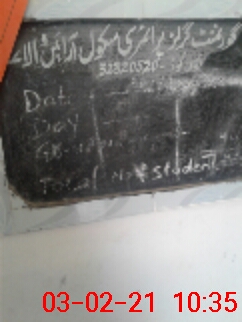 گورنمنٹ گرلز پرائمری سکول آرائیں والا
32320520
Date
Day
Total No of student
03-02-21 10:35